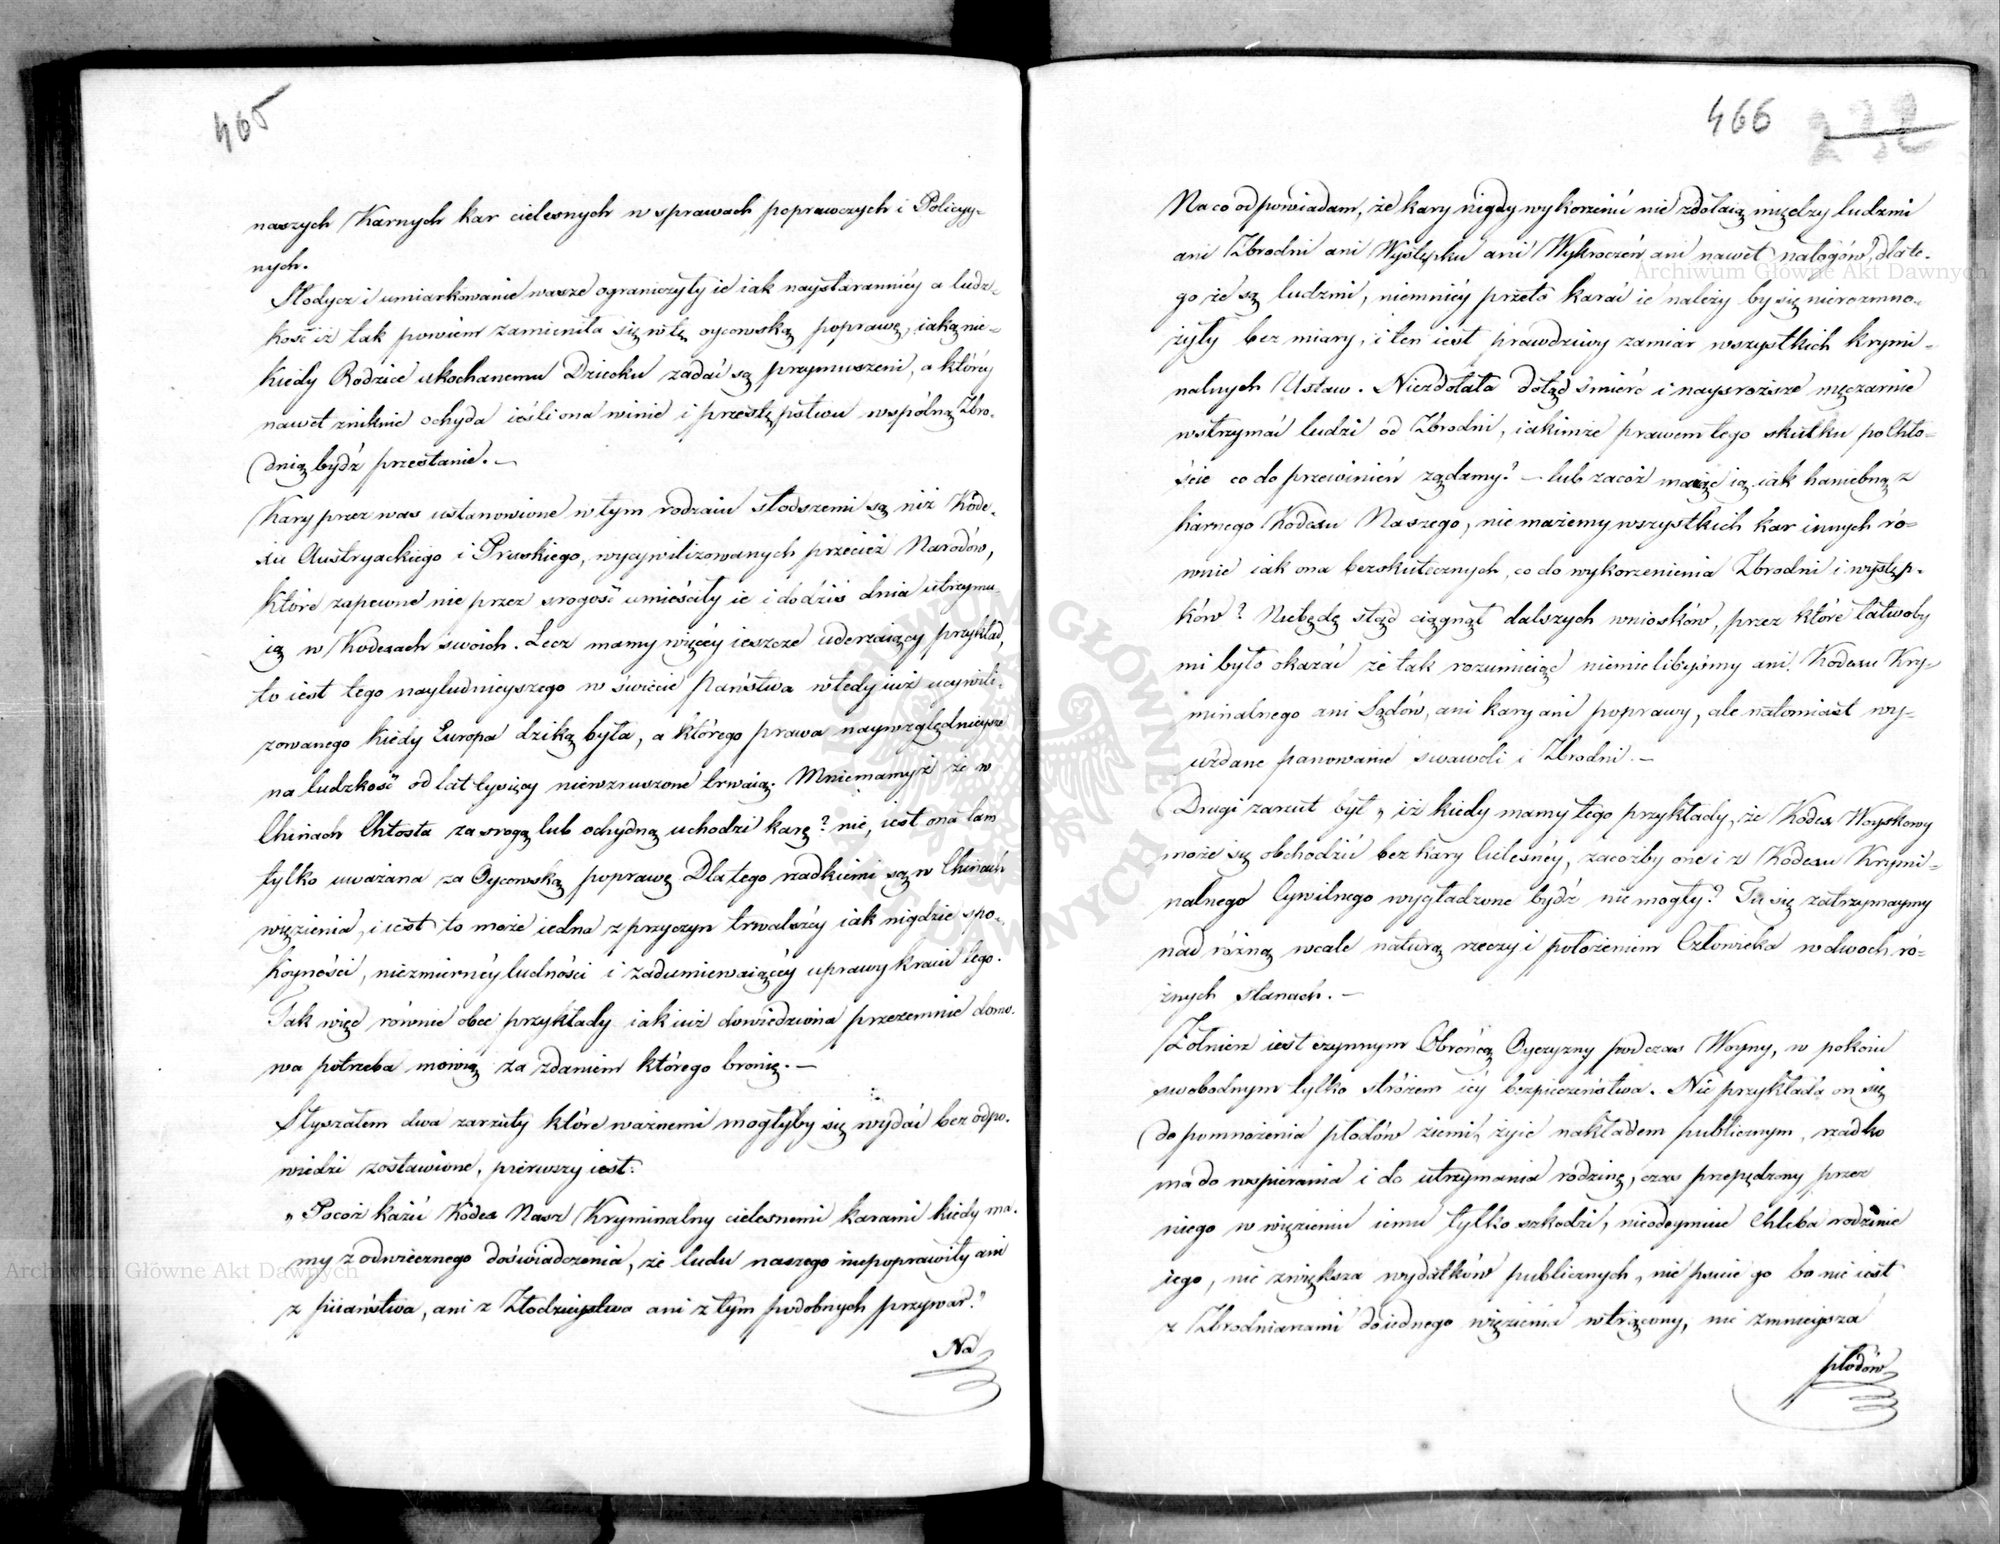 465
naszych Karnych kar cielesnych w sprawach poprawczych i Policyy-
nych.
Słodycz i umiarkowanie wasze ograniczyły ie iak naystarannićy a ludz-
kość iż tak powiem zamieniła się w tę oycowską poprawę, iaką nie-
kiedy Rodzice ukochanemu Dziecku zadać są przymuszeni, a którćy
nawet zniknie ochyda ieśli ona winie i przestępstwu wspólną Zbro-
dnią bydź przestanie. —
Kary przez was ustanowione w tym rodzaiu słodszemi są niż Kode-
xu Austryackiego i Pruskiego, wycywilizowanych przecież Narodów,
które zapewne nie przez srogość umieściły ie i do dziś dnia utrzymu-
ią w Kodexach swoich. Lecz mamy więcćy ieszcze uderzaiący przykład,
to iest tego nayludnieyszego w świecie Państwa wtedy iuż ucywili-
zowanego kiedy Europa dziką była, a którego prawa naywzględnieysze
na ludzkość od lat tysięcy niewzruszone trwaią. Mniemamyż że w
Chinach Chłosta za srogą lub ochydną uchodzi karę? nie, iest ona tam
tylko uważana za Oycowską poprawę. Dla tego rzadkiemi są w Chinach
więzienia, i iest to może iedna z przyczyn trwalszćy iak nigdzie spo-
koyności, niezmiernćy ludności i zadumiewaiącćy uprawy kraiu tego.
Tak więc równie obce przykłady iak iuż dowiedziona przezemnie domo-
wa potrzeba mówią za zdaniem którego bronię. —
Słyszałem dwa zarzuty które ważnemi mogłyby się wydać bez odpo-
wiedzi zostawione, pierwszy iest:
„Pocóż kazić Kodex Nasz Kryminalny cielesnemi karami kiedy ma-
my z odwiecznego doświadczenia, że ludu naszego niepoprawiły ani
z piiaństwa, ani z Złodzieystwa ani z tym podobnych przywar."
Na
466
232
Na co odpowiadam, że kary nigdy wykorzenić nie zdołaią między ludzmi
ani Zbrodni ani Występku ani Wykroczeń ani nawet nałogów, dla te-
go że są ludzmi, niemnićy przeto karać ie należy by się nierozmno-
żyły bez miary, i ten iest prawdziwy zamiar wszystkich krymi-
nalnych Ustaw. Niezdołała dotąd śmierć i naysroższe męczarnie
wstrzymać ludzi od Zbrodni, iakimże prawem tego skutku po Chło-
ście co do przewinień żądamy? — lub zacóż mażąc ią iak haniebną z
karnego Kodexu Naszego, nie mażemy wszystkich kar innych ró-
wnie iak ona bezskutecznych, co do wykorzenienia Zbrodni i występ-
ków? Niebędę stąd ciągnął dalszych wniosków, przez które łatwoby
mi było okazać że tak rozumieiąc niemielibyśmy ani Kodexu Kry-
minalnego ani Sądów, ani kary ani poprawy, ale natomiast wy-
uzdane panowanie swawoli i Zbrodni. —
Drugi zarzut był „iż kiedy mamy tego przykłady, że Kodex Woyskowy
może się obchodzić bez kary Cielesnćy, zacożby one i z Kodexu Krymi-
nalnego Cywilnego wygładzone bydź nie mogły? Tu się zatrzymaymy
nad różną wcale naturą rzeczy i położeniem Człowieka w dwóch ró-
żnych stanach. —
Żołnierz iest czynnym Obrońcą Oyczyzny podczas Woyny, w pokoiu
swobodnym tylko stróżem ićy bezpieczeństwa. Nie przykłada on się
do pomnożenia płodów ziemi, żyie nakładem publicznym, rzadko
ma do wspierania i do utrzymania rodzinę, czas przepędzony przez
niego w więzieniu iemu tylko szkodzi, nieodeymuie Chleba rodzinie
iego, nie zwiększa wydatków publicznych, nie psuie go bo nie iest
z Zbrodniarzami do iednego więzienia wtrącony, nie zmnieysza
płodów
Archiwum Główne Akt Dawnych